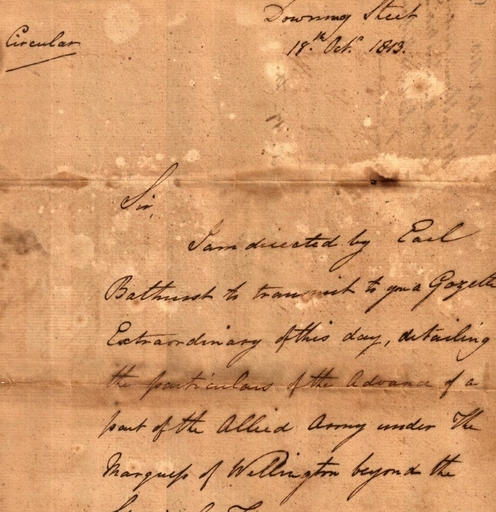 Downing Street
Circular
18th Octr 1813.
Sir,
I am directed by Earl
Bathurst to transmit to you a Gazette
Extraordinary of this day, detailing
the particulars of the Advance of a
part of the Allied Army under The
Marquess of Wellington beyond the